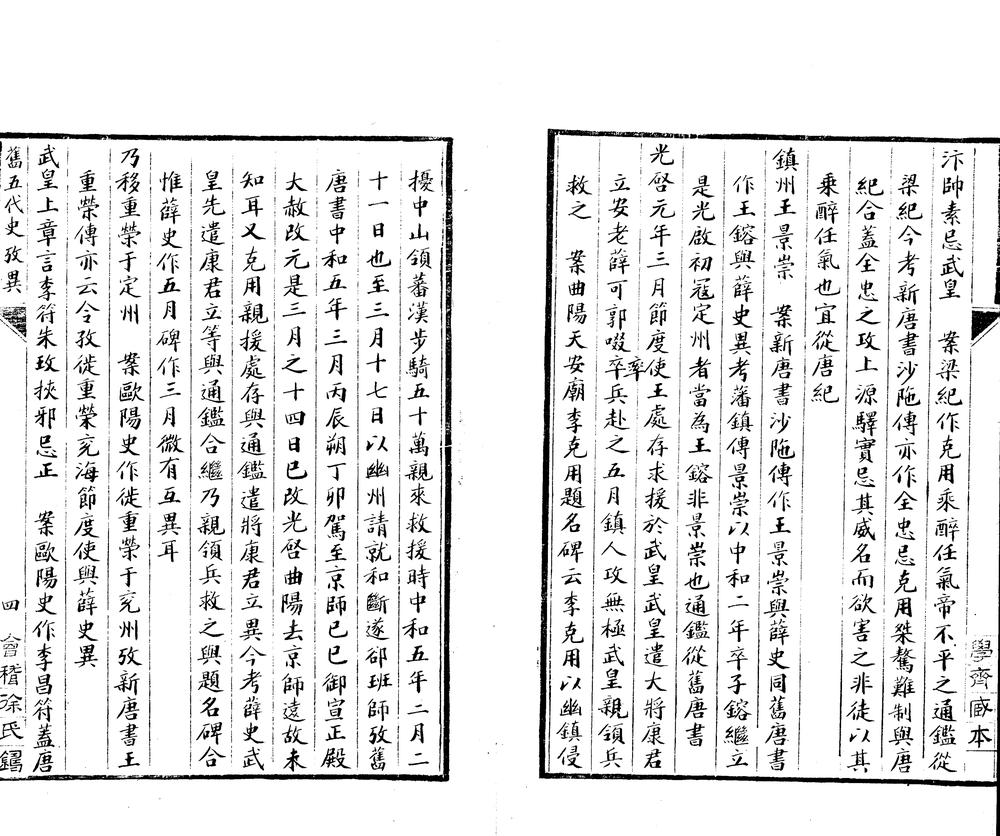 汴帥素忌武皇　案梁紀作克用乘醉任氣帝不平之通鑑從
梁紀今考新唐書沙陁傳亦作全忠忌克用桀驁難制與唐
紀合蓋全忠之攻上源驛實忌其威名而欲害之非徒以其
乘醉任氣也宜從唐紀
鎮州王景崇　案新唐書沙陁傳作王景崇與薛史同舊唐書
作王鎔與薛史異考藩鎮傳景崇以中和二年卒子鎔繼立
是光啟初寇定州者當為王鎔非景崇也通鑑從舊唐書
光啓元年三月節度使王處存求援於武皇武皇遣大將康君
立安老薛可郭啜率兵赴之五月鎮人攻無極武皇親領兵
救之　案曲陽天安廟李克用題名碑云李克用以幽鎮侵
學齊䣊本
擾中山領蕃漢步騎五十萬親來救援時中和五年二月二
十一日也至三月十七日以幽州請就和斷遂卻班師攷舊
唐書中和五年三月丙辰朔丁卯駕至京師己巳御宣正殿
大赦改元是三月之十四日已改光啓曲陽去京師遠故未
知耳又克用親援處存與通鑑遣將康君立異今考薛史武
皇先遣康君立等與通鑑合繼乃親領兵救之與題名碑合
惟薛史作五月碑作三月微有互異耳
乃移重榮于定州　案歐陽史作徙重榮于兗州攷新唐書王
重榮傳亦云令孜徙重榮兗海節度使與薛史異
武皇上章言李符朱玫挾邪忌正　案歐陽史作李昌符蓋唐
舊五代史攷異
四
會稽徐氏鑄